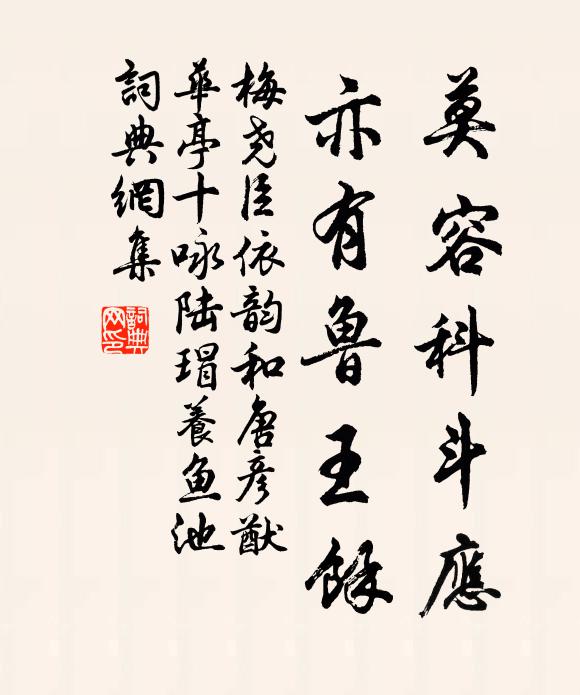 莫容科斗應
亦有魯王餘
梅尧臣依韵和唐彦猷
華亭十咏陆瑁養魚池
詞典網集
詞典网印